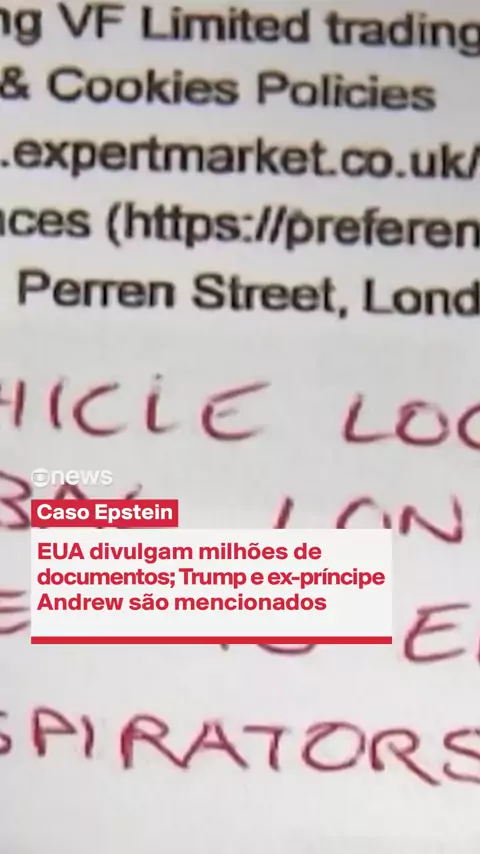 VF Limited trading
& Cookies Policies
.expertmarket.co.uk/
(https://preferen
Perren Street, Lond
HICLE LOC
news
Caso Epstein
LON
EUA divulgam milhões de
documentos; Trump e ex-príncipe
Andrew são mencionados
SPIRATORS